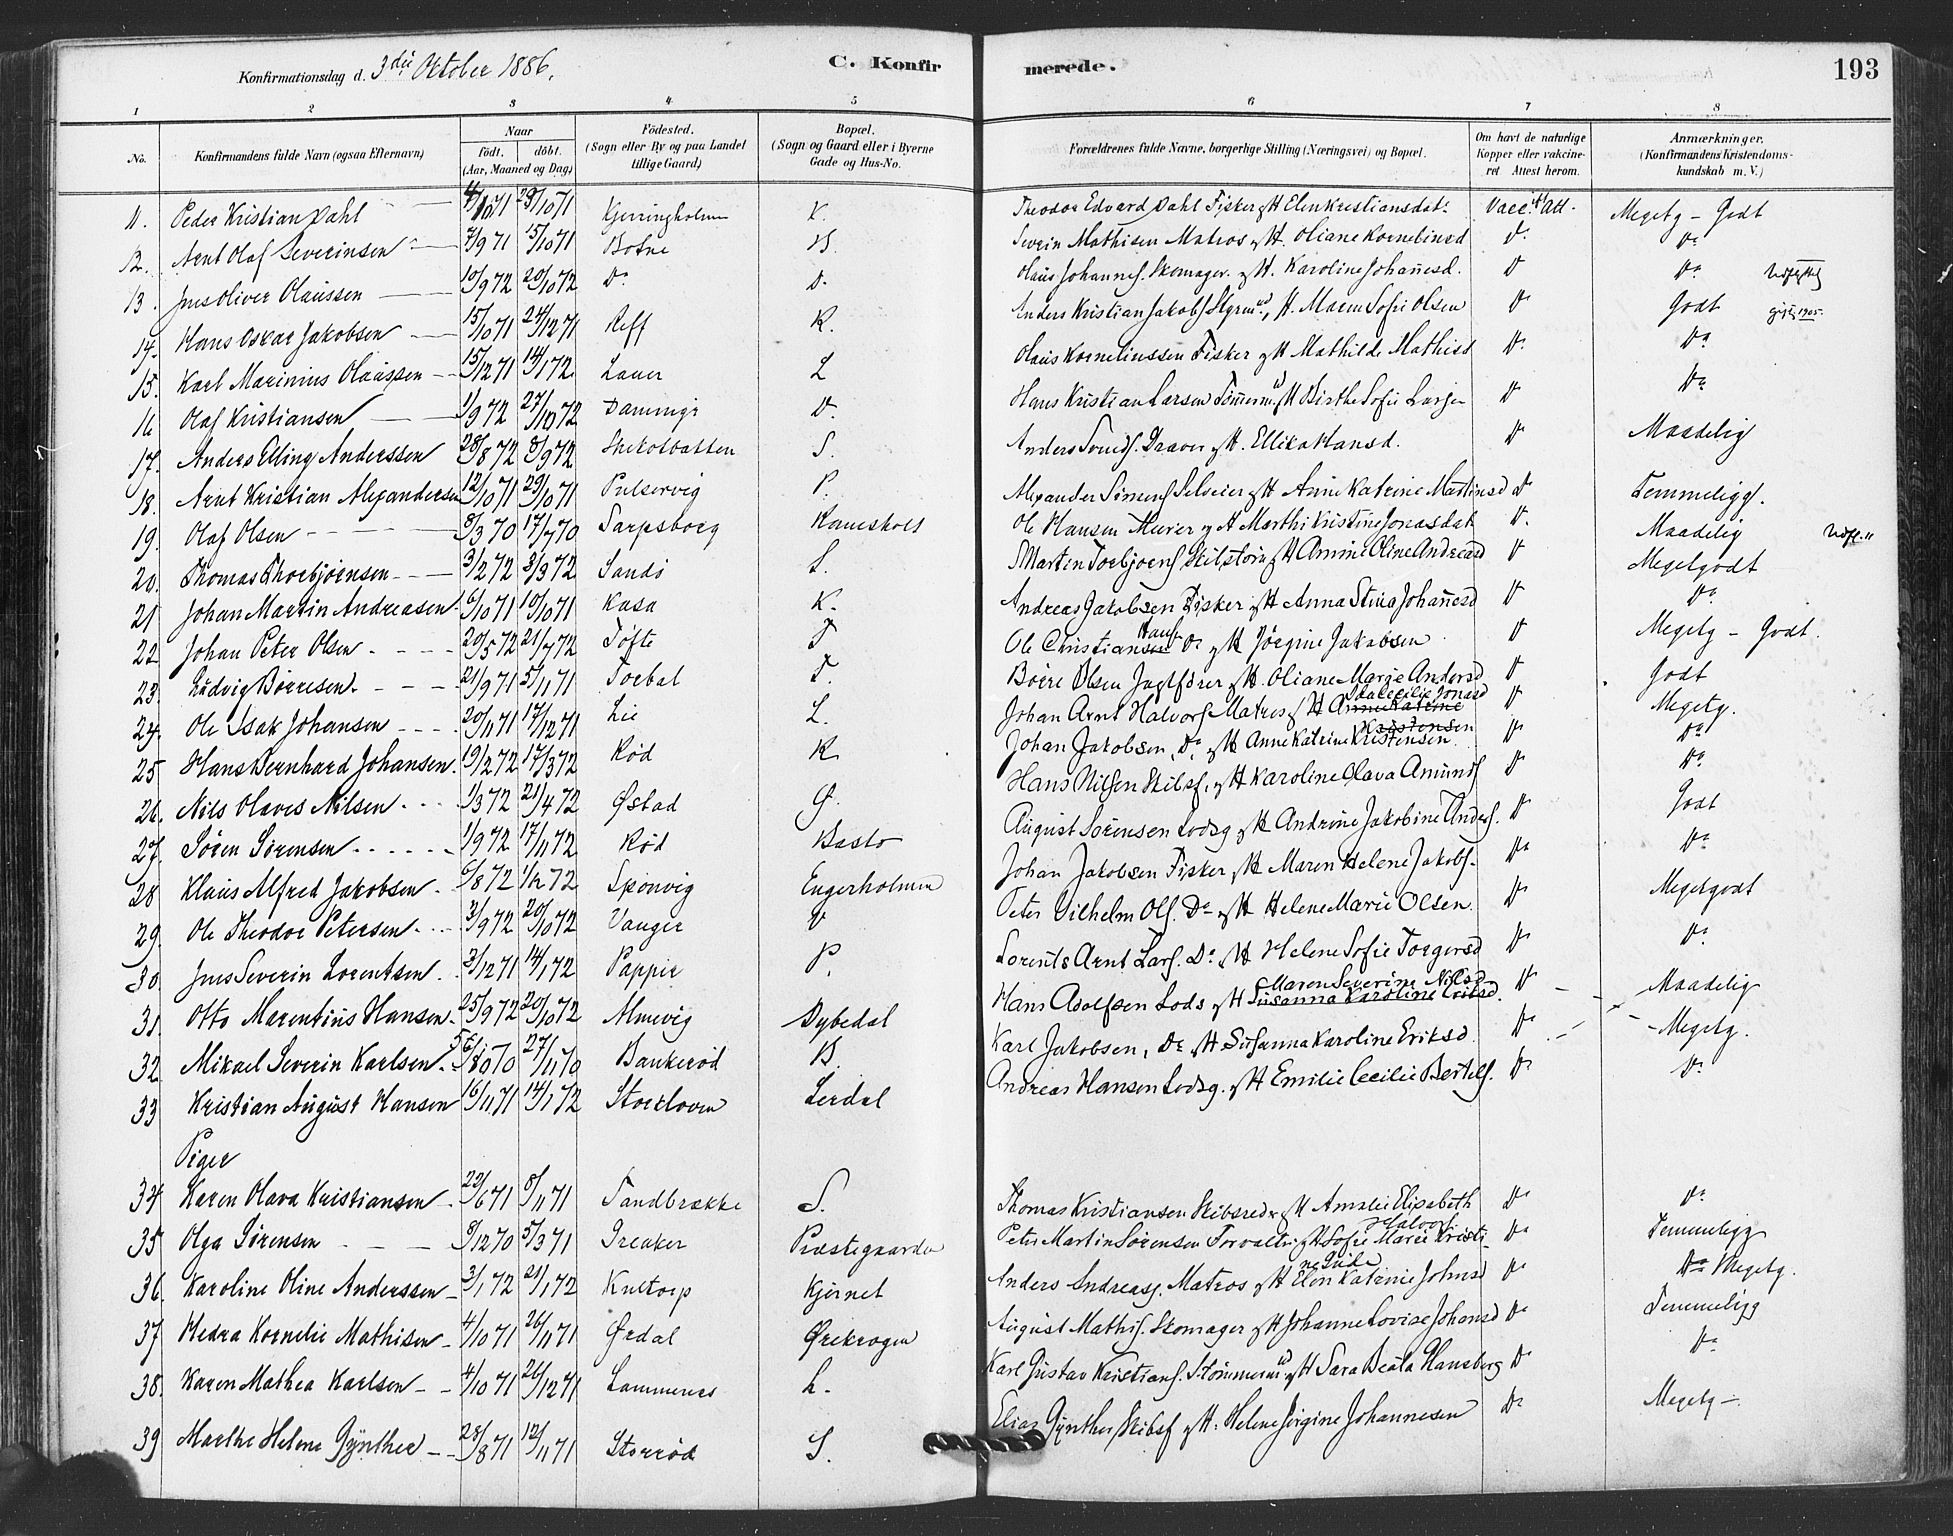 Konfirmationsdag d. 3die October 1886.
C. Konfirmerede.
193
1 2 3 4 5 6 7 8
No. Konfirmandens fulde Navn (ogsaa Efternavn) Naar Födt. döbt. (Aar, Maaned og Dag) Födested. (Sogn eller By og paa Landet tillige Gaard) Bopæl. (Sogn og Gaard eller i Byerne Gade og Hus-No. Forældrenes fulde Navne, borgerlige Stilling (Næringsvei) og Bopæl. Om havt de naturlige Kopper eller vakcineret Attest herom. Anmærkninger. (Konfirmandens Kristendomskundskab m. V.)
11. Peder Kristian Dahl 4/10 71 29/10 71 Kjerringholmen K. Theodor Edvard Dahl Fisker og H Elen Kristiansdat. Vacc. Att. Megetg - Godt
12. Arnt Olaf Severinsen 7/9 71 15/10 71 Botne B. Severin Mathisen Matros og H. Oliane Kornelinsd Do Do
13. Jens Oliver Olaussen 10/9 72 20/10 72 Do D. Olaus Johannes. Skomager. og H. Karoline Johannesd. Do Do
14. Hans Oskar Jakobsen 15/10 71 24/12 71 Reff R. Anders Kristian Jakobs. Styrmd, H. Maren Sofie Olsen Do Godt 1905.
15. Karl Marinius Olaussen 15/12 71 14/1 72 Lauer L Olaus Korneliussen Fisker og H Mathilde Mathisd Do Do
16 Olaf Kristiansen 1/9 72 27/10 72 Dammyr D. Hans Kristian Larsen Tømmerm. og H Birthe Sofie Larsen Do Do
17. Anders Elling Anderssen 28/8 72 8/9 72 S. Anders Svends. Draver og H. Ellika Hansd. Do Maadelig
18. Arnt Kristian Alexandersen 12/10 71 29/10 71 Pulservig P. Alexander Simens. Selveier og H Anne Katrine Martinsd Do Temmeligg.
19. Olaf Olsen 8/3 70 17/7 70 Sarpsborg Ramsholt Ole Hansen Murer og H Marthe Kristine Jonasdat Do Maadelig
20. Thomas Thorbjørnsen 3/2 72 3/3 72 Sandø S. Martin Torbjørns. Skibstøm. og H Amine Oline Andreasd Do Megetgodt
21 Johan Martin Andreasen 6/10 71 10/10 71 Kasa K. Andreas Jakobsen Fisker og H Anna Stina Johannesd Do Do
22 Johan Peter Olsen 20/5 72 21/7 72 Tofte T Ole Christian Hans. Do og H Jørgine Jakobsen Do Megetg - Godt.
23. Ludvig Børresen 21/9 71 5/11 71 Torbal T. Børre Olsen Jagtfører og H. Oliane Marie Andersd Do Godt
24. Ole Isak Johansen 20/11 71 17/12 71 Lie L. Johan Arnt Halvors. Matros og H Ida Cecilie Jonasd Anne Katrine Kristensen Do Megetg.
25 Hans Bernhard Johansen 19/2 72 17/3 72 Rød R Johan Jakobsen, Do og H Anne Katrine Kristensen Do Do
26. Nils Olaves Nilsen 1/3 72 21/4 72 Østad Ø. Hans Nilsen Skibsf. og H Karoline Olava Amunds Do Do
27. Søren Sørensen 1/9 72 17/11 72 Rød Basto August Sørensen Lodsg og H Andrine Jakobine Anders. Do Godt
28 Klaus Alfred Jakobsen 6/8 72 1/12 72 Skjonvig Engerholmen Johan Jakobsen Fisker og H Maren Helene Jakobs. Do Do
29. Ole Theodor Petersen 3/9 72 20/10 72 Vauger V Peter Vilhelm Ols. Do og H Helene Marie Olsen. Do Megetgodt
30. Jens Severin Lorentsen 3/12 71 14/1 72 Papper P. Lorents Arnt Lars. Do og H Helene Sofie Torgersd Do Do
31. Otto Marentius Hansen 25/9 72 20/10 72 Almevig Dybedal Hans Adolfsen Lods og H Maren Severine Nilsd Susanna Karoline Eriksd. Do Maadelig
32. Mikael Severin Karlsen 27/11 70 Bankerød B. Karl Jakobsen, Do og H Susanna Karoline Eriksd. Do Megetg.
33 Kristian August Hansen 16/11 71 14/1 72 Storeloven Lerdal Andreas Hansen Lodsg. og H Emilie Cecilie Bertels. Do Do
Piger
34. Karen Olava Kristiansen 22/6 71 8/11 71 Sandbrække S. Thomas Kristiansen Skibsreder og H Amalie Elisabeth Halvors. Do Do
35 Olga Sørensen 8/12 70 5/3 71 Greaker Præstegaarden Peter Martin Sørensen Forvalter og H Sofie Marie Kristine Gude Do Temmeligg
36. Karoline Oline Anderssen 3/1 72 21/1 72 Kultorp Kjernet Anders Andreas. Matros og H Elen Katrine Johnsd Do Do Megetg.
37 Hedra Kornelie Mathisen 4/10 71 26/11 71 Ørdal Ørekrogen August Mathis. Skomager og H Johanne Lovise Johansd Do Temmeligg
38. Karen Mathea Karlsen 4/10 71 26/12 71 Lammeres L. Karl Gustav Kristians. Stømmerm. og H Sara Beata Hansberg Do Do
39 Marthe Helene Gynther 28/8 71 12/11 71 Storrød S. Elias Gynther Skibsf og H. Helene Jørgine Johannesen Do Megetg